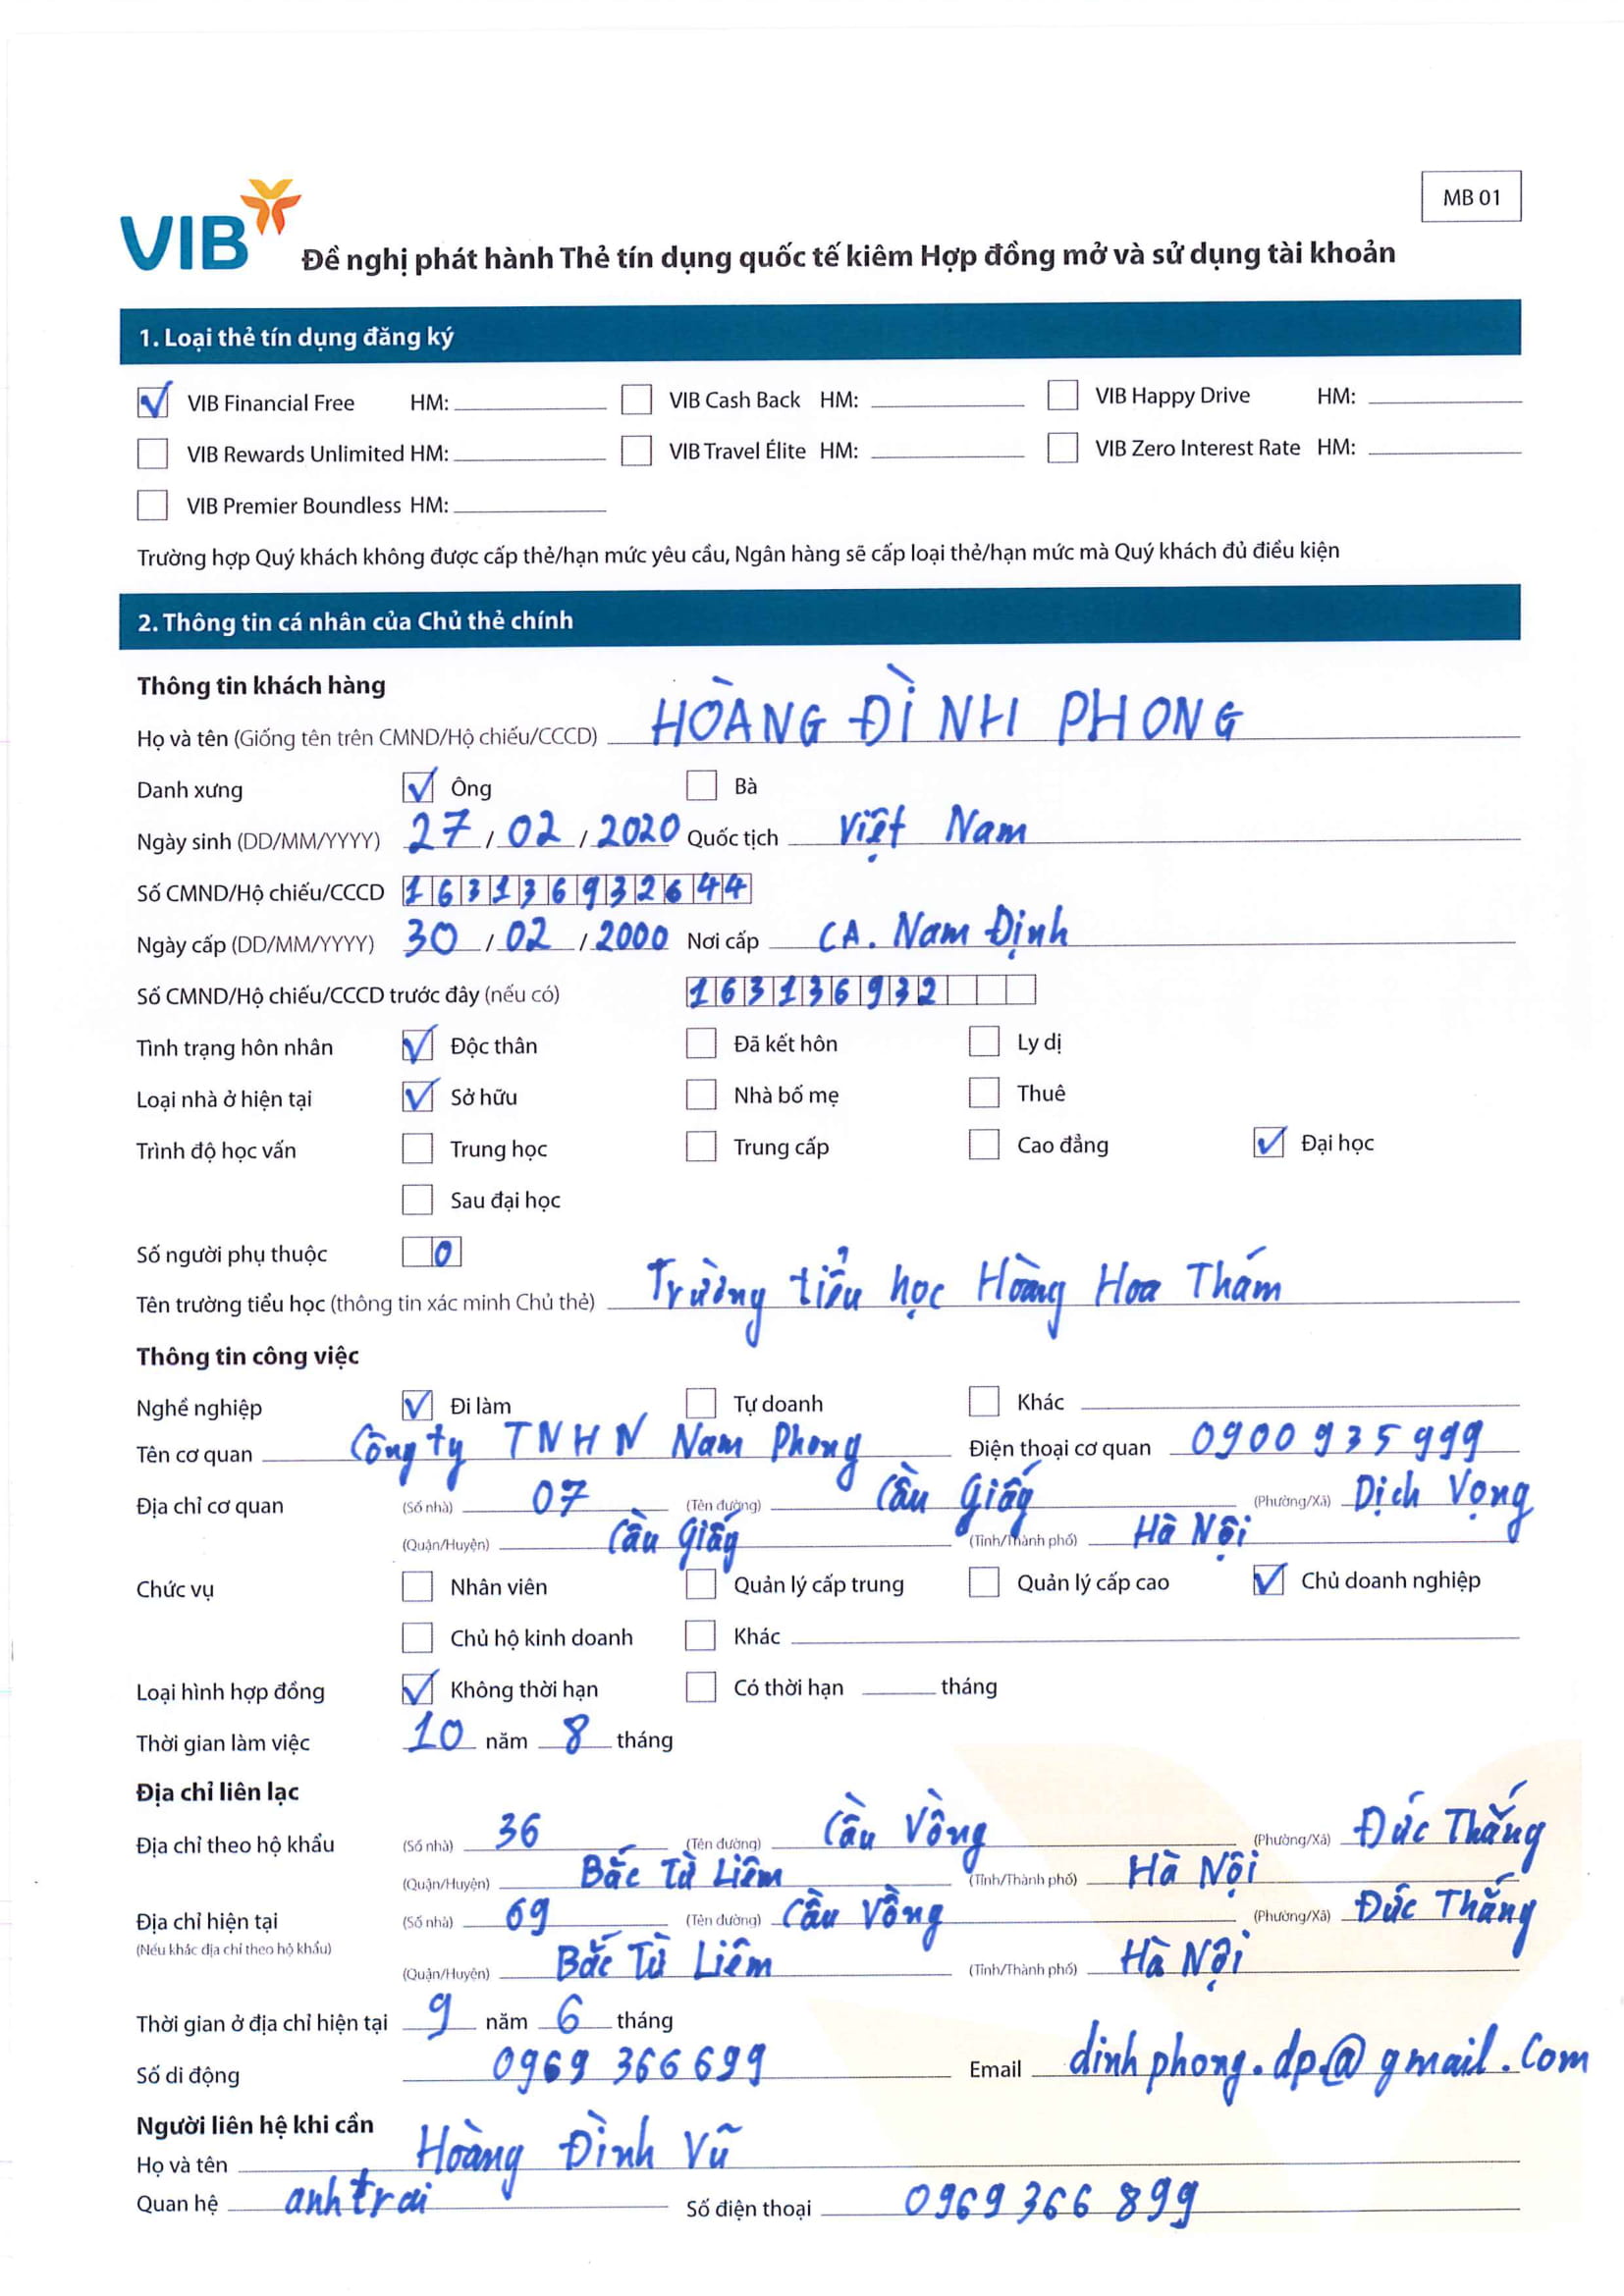 MB 01
VIB Đề nghị phát hành Thẻ tín dụng quốc tế kiêm Hợp đồng mở và sử dụng tài khoản
1. Loại thẻ tín dụng đăng ký
VIB Financial Free HM: VIB Cash Back HM: VIB Happy Drive HM:
VIB Rewards Unlimited HM: VIB Travel Élite HM: VIB Zero Interest Rate HM:
VIB Premier Boundless HM:
Trường hợp Quý khách không được cấp thẻ/hạn mức yêu cầu, Ngân hàng sẽ cấp loại thẻ/hạn mức mà Quý khách đủ điều kiện
2. Thông tin cá nhân của Chủ thẻ chính
Thông tin khách hàng
Họ và tên (Giống tên trên CMND/Hộ chiếu/CCCD) HOÀNG ĐÌNH PHONG
Danh xưng Ông Bà
Ngày sinh (DD/MM/YYYY) 27 / 02 / 2020 Quốc tịch Việt Nam
Số CMND/Hộ chiếu/CCCD 163136932644
Ngày cấp (DD/MM/YYYY) 30 / 02 / 2000 Nơi cấp CA. Nam Định
Số CMND/Hộ chiếu/CCCD trước đây (nếu có) 163136932
Tình trạng hôn nhân Độc thân Đã kết hôn Ly dị
Loại nhà ở hiện tại Sở hữu Nhà bố mẹ Thuê
Trình độ học vấn Trung học Trung cấp Cao đẳng Đại học
Sau đại học
Số người phụ thuộc 0
Tên trường tiểu học (thông tin xác minh Chủ thẻ) Trường tiểu học Hoàng Hoa Thám
Thông tin công việc
Nghề nghiệp Đi làm Tự doanh Khác
Tên cơ quan Công ty TNHN Nam Phong Điện thoại cơ quan 0900 935 999
Địa chỉ cơ quan (Số nhà) 07 (Tên đường) Cầu Giấy (Phường/Xã) Dịch Vọng
(Quận/Huyện) Cầu Giấy (Tỉnh/Thành phố) Hà Nội
Chức vụ Nhân viên Quản lý cấp trung Quản lý cấp cao Chủ doanh nghiệp
Chủ hộ kinh doanh Khác
Loại hình hợp đồng Không thời hạn Có thời hạn tháng
Thời gian làm việc 10 năm 8 tháng
Địa chỉ liên lạc
Địa chỉ theo hộ khẩu (Số nhà) 36 (Tên đường) Cầu Vồng (Phường/Xã) Đức Thắng
(Quận/Huyện) Bắc Từ Liêm (Tỉnh/Thành phố) Hà Nội
Địa chỉ hiện tại (Số nhà) 69 (Tên đường) Cầu Vồng (Phường/Xã) Đức Thắng
(Nếu khác địa chỉ theo hộ khẩu)
(Quận/Huyện) Bắc Từ Liêm (Tỉnh/Thành phố) Hà Nội
Thời gian ở địa chỉ hiện tại 9 năm 6 tháng
Số di động 0969 366 699 Email dinhphong.dp@gmail.com
Người liên hệ khi cần
Họ và tên Hoàng Đình Vũ
Quan hệ anh trai Số điện thoại 0969 366 899